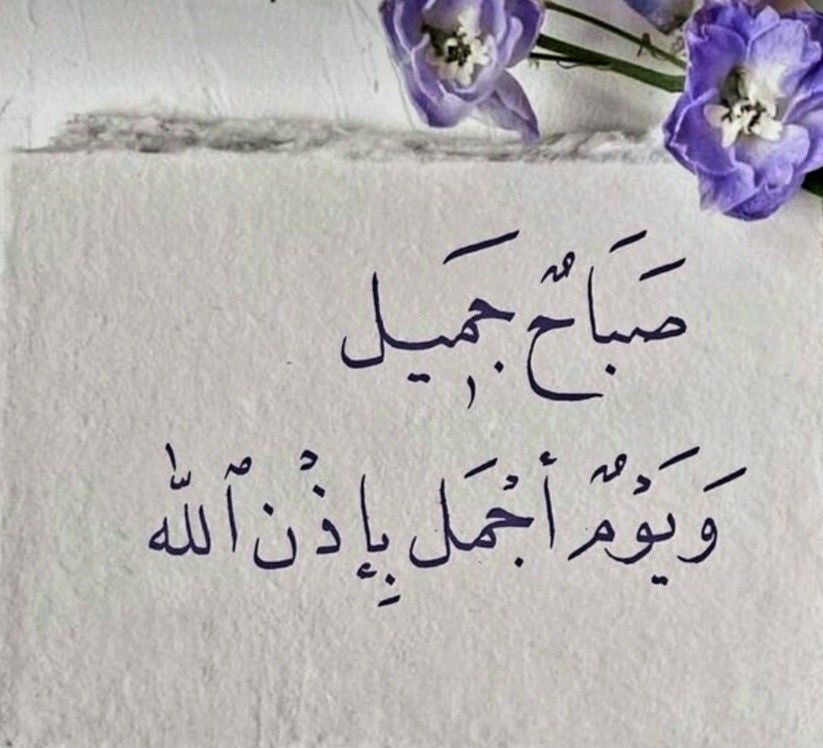 صَبَاحٌ جَمِيل
وَيَوْمٌ أجْمَل بِإذْن ٱللّٰه